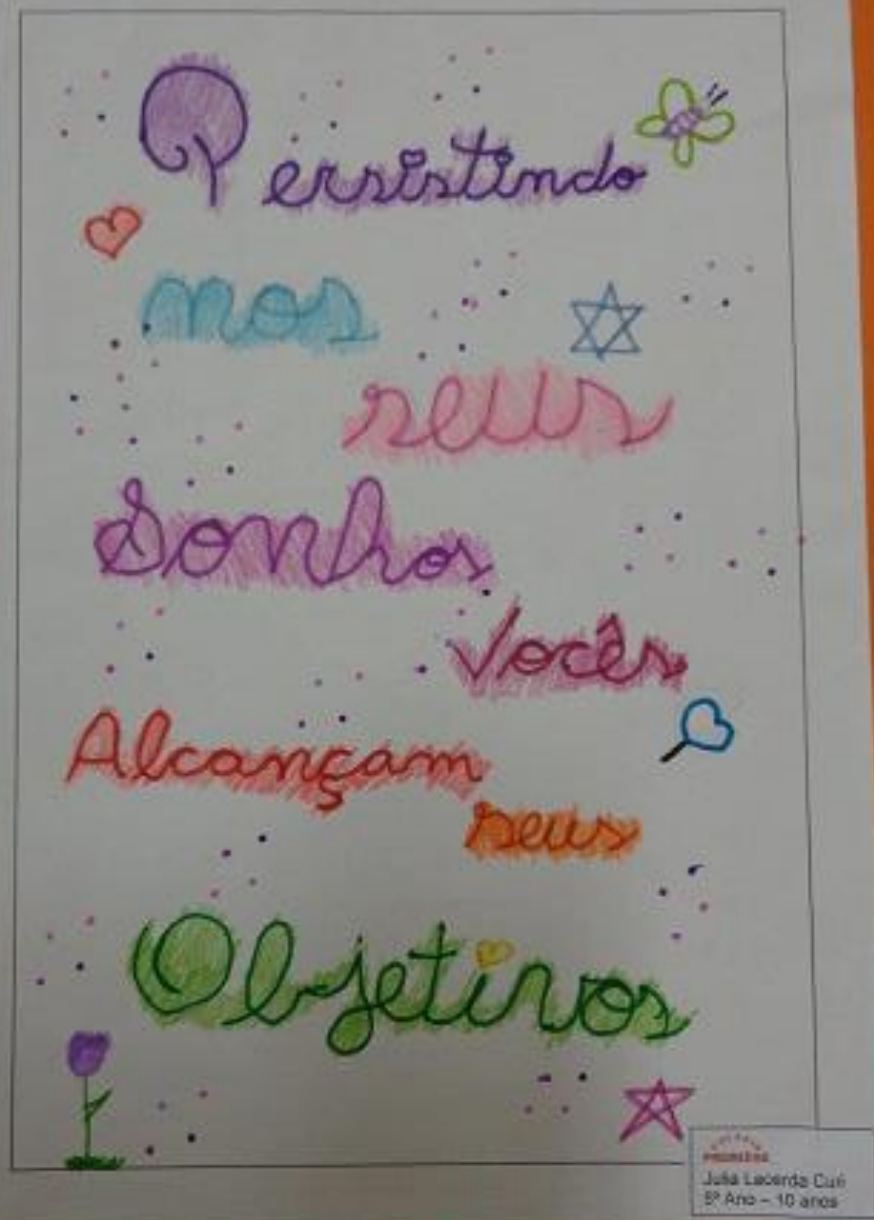 Persistindo
nos
seus
Sonhos
Vocês
Alcançam
seus
Objetivos
COLÉGIO
Julia Lacerda Curi
5º Ano – 10 anos